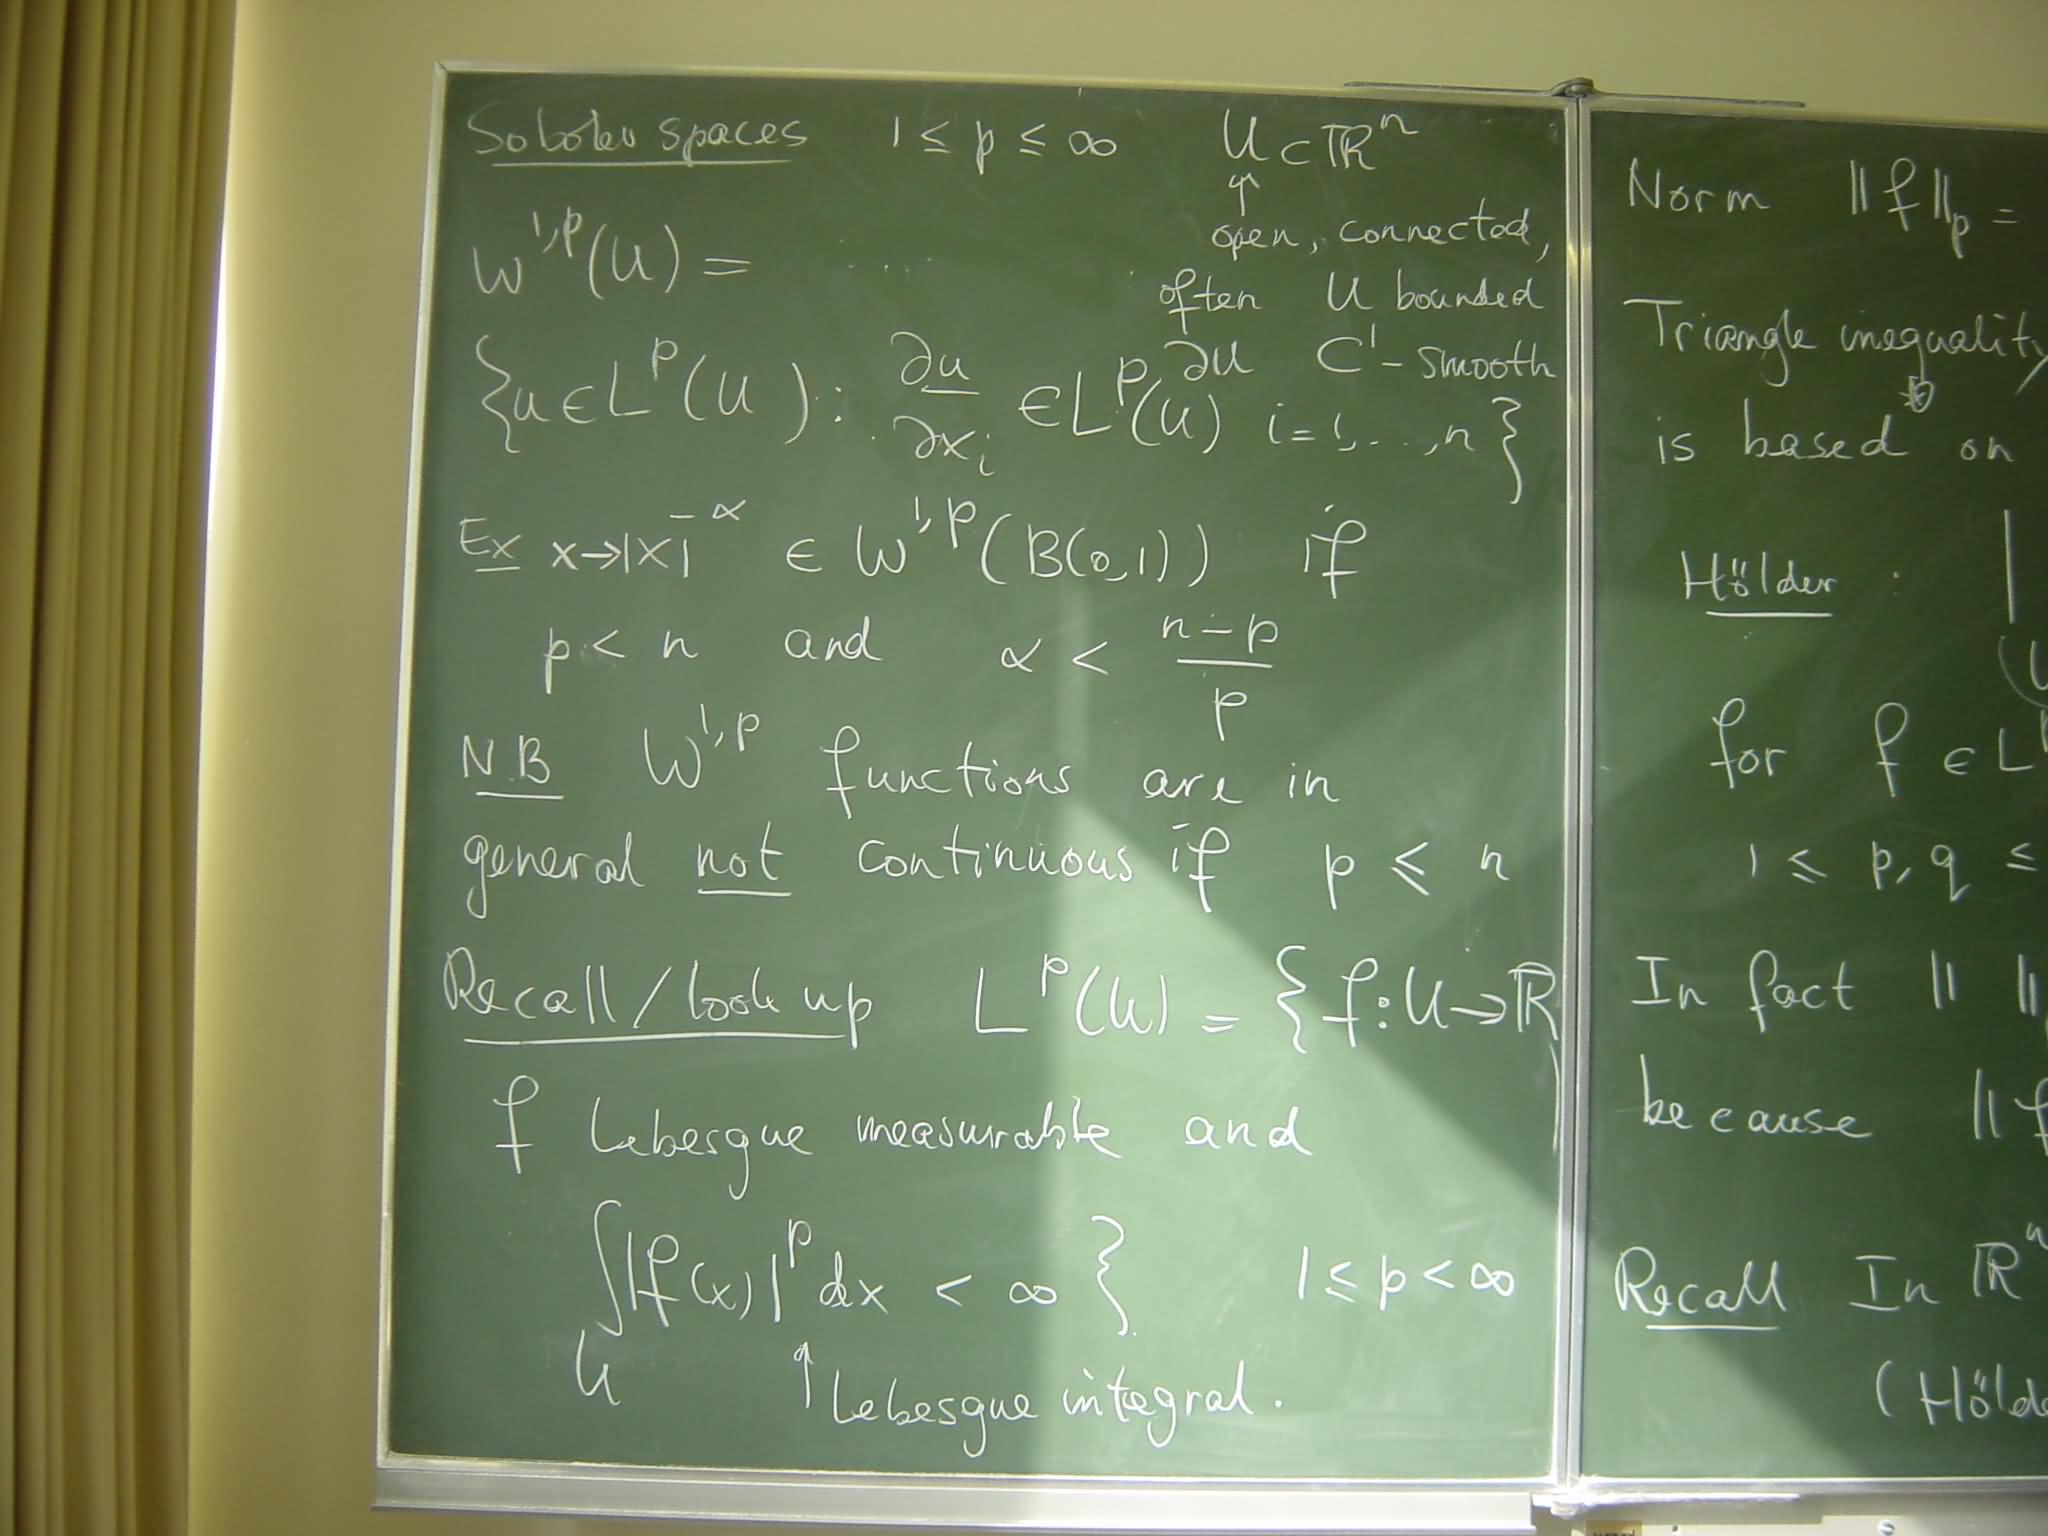 Sobolev spaces 1 ≤ p ≤ ∞ U ⊂ ℝⁿ
↑
open, connected,
W^{1,p}(U) = ....
often U bounded
∂U C¹-smooth
{u ∈ L^p(U): ∂u/∂x_i ∈ L^p(U) i=1,...,n}
Ex x→|x|^{-α} ∈ W^{1,p}(B(0,1)) if
p < n and α < (n-p)/p
N.B W^{1,p} functions are in
general not continuous if p ≤ n
Recall/look up L^p(U) = {f: U→ℝ
f Lebesgue measurable and
∫_U |f(x)|^p dx < ∞} 1 ≤ p < ∞
↑ Lebesgue integral.
Norm ‖f‖_p =
Triangle inequality
is based on
Hölder :
for f ∈ L^p
1 ≤ p, q ≤
In fact ‖ ‖
because ‖f
Recall In ℝⁿ
(Hölde